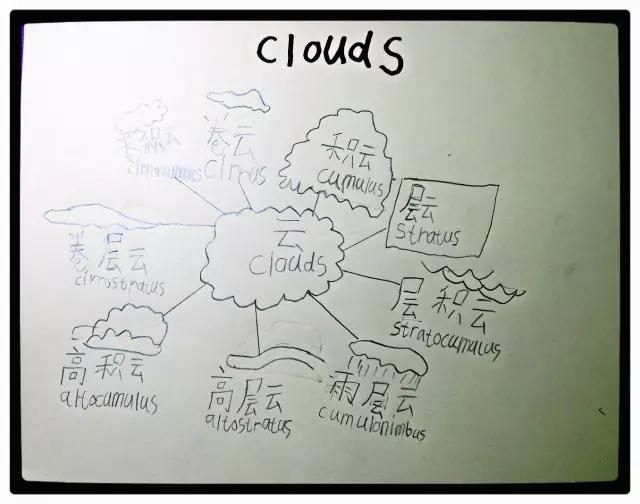 clouds
卷积云
cirrocumulus
卷云
cirrus
积云
cumulus
层云
stratus
云
clouds
卷层云
cirrostratus
层积云
stratocumulus
高积云
altocumulus
高层云
altostratus
雨层云
cumulonimbus